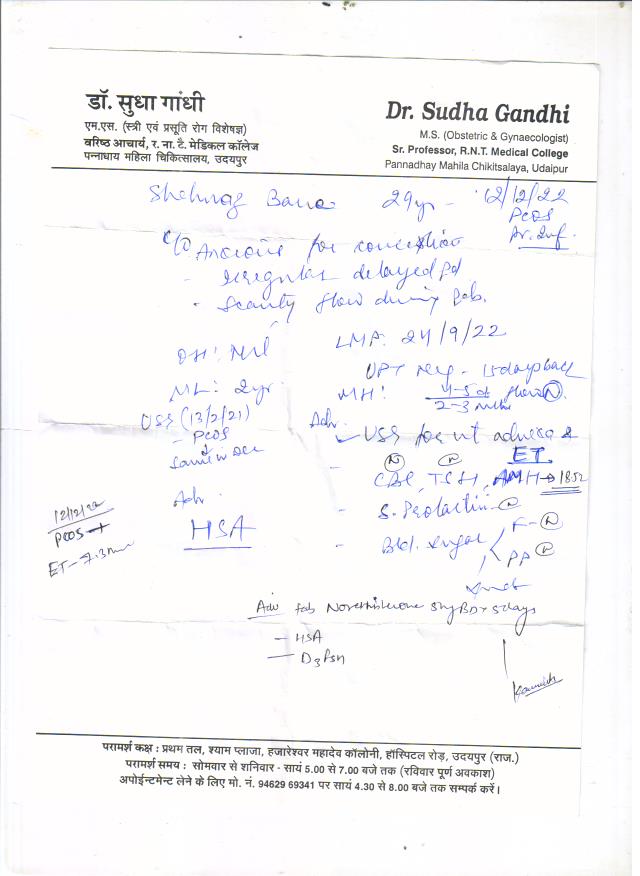 डॉ. सुधा गांधी
एम.एस. (स्त्री एवं प्रसूति रोग विशेषज्ञ)
वरिष्ठ आचार्य, र. ना. टै. मेडिकल कॉलेज
पन्नाधाय महिला चिकित्सालय, उदयपुर
Dr. Sudha Gandhi
M.S. (Obstetric & Gynaecologist)
Sr. Professor, R.N.T. Medical College
Pannadhay Mahila Chikitsalaya, Udaipur
Shehnaz Bano 29yr - 12/12/22
PCOS
Pr. Inf.
C/O Anxious for conception
- Irregular delayed Pd
- Scanty flow during Pds.
LMP: 24/9/22
OH: Nil
UPT Neg - 15 days back
ML: 2yr.
MH: 4-5 d flow N
2-3 mths
USS (13/2/21)
- PCOS
Adv.
USS for ut adnexa &
ET.
- CBC N, TSH, AMH → 18.52
- S. Prolactin - N
- Bld. sugar F - N
PP
Adv.
HSA
12/12/22
PCOS +
ET - 7.3mm
Adv Tab Norethisterone 5mg BD x 5days
- HSA
- D3 FSH
परामर्श कक्ष : प्रथम तल, श्याम प्लाजा, हजारेश्वर महादेव कॉलोनी, हॉस्पिटल रोड़, उदयपुर (राज.)
परामर्श समय : सोमवार से शनिवार - सायं 5.00 से 7.00 बजे तक (रविवार पूर्ण अवकाश)
अपोईन्टमेन्ट लेने के लिए मो. नं. 94629 69341 पर सायं 4.30 से 8.00 बजे तक सम्पर्क करें।